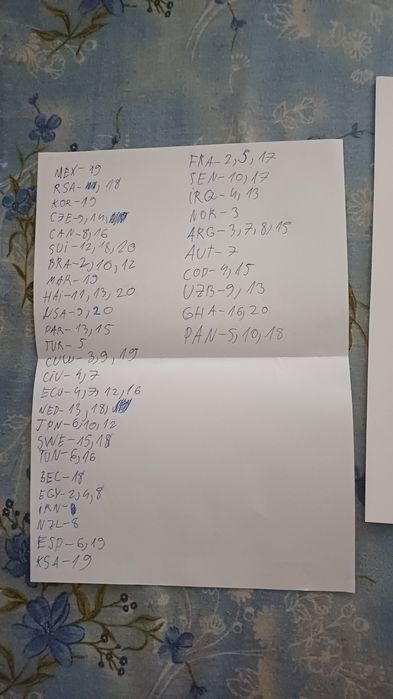 MEX-19
RSA-18
KOR-19
CZE-9, 14,
CAN-8, 16
SUI-12, 18, 20
BRA-2, 10, 12
MAR-19
HAI-11, 13, 20
USA-9, 20
PAR-13, 15
TUR-5
CUW-3, 9, 19
CIV-4, 7
ECU-4, 7, 12, 16
NED-13, 18,
JPN-6, 10, 12
SWE-15, 18
TUN-6, 16
BEL-18
EGY-2, 4, 8
IRN-
NZL-8
ESP-6, 19
KSA-19
FRA-2, 5, 17
SEN-10, 17
IRQ-4, 13
NOR-3
ARG-3, 7, 8, 15
AUT-7
COD-4, 15
UZB-9, 13
GHA-16, 20
PAN-5, 10, 18